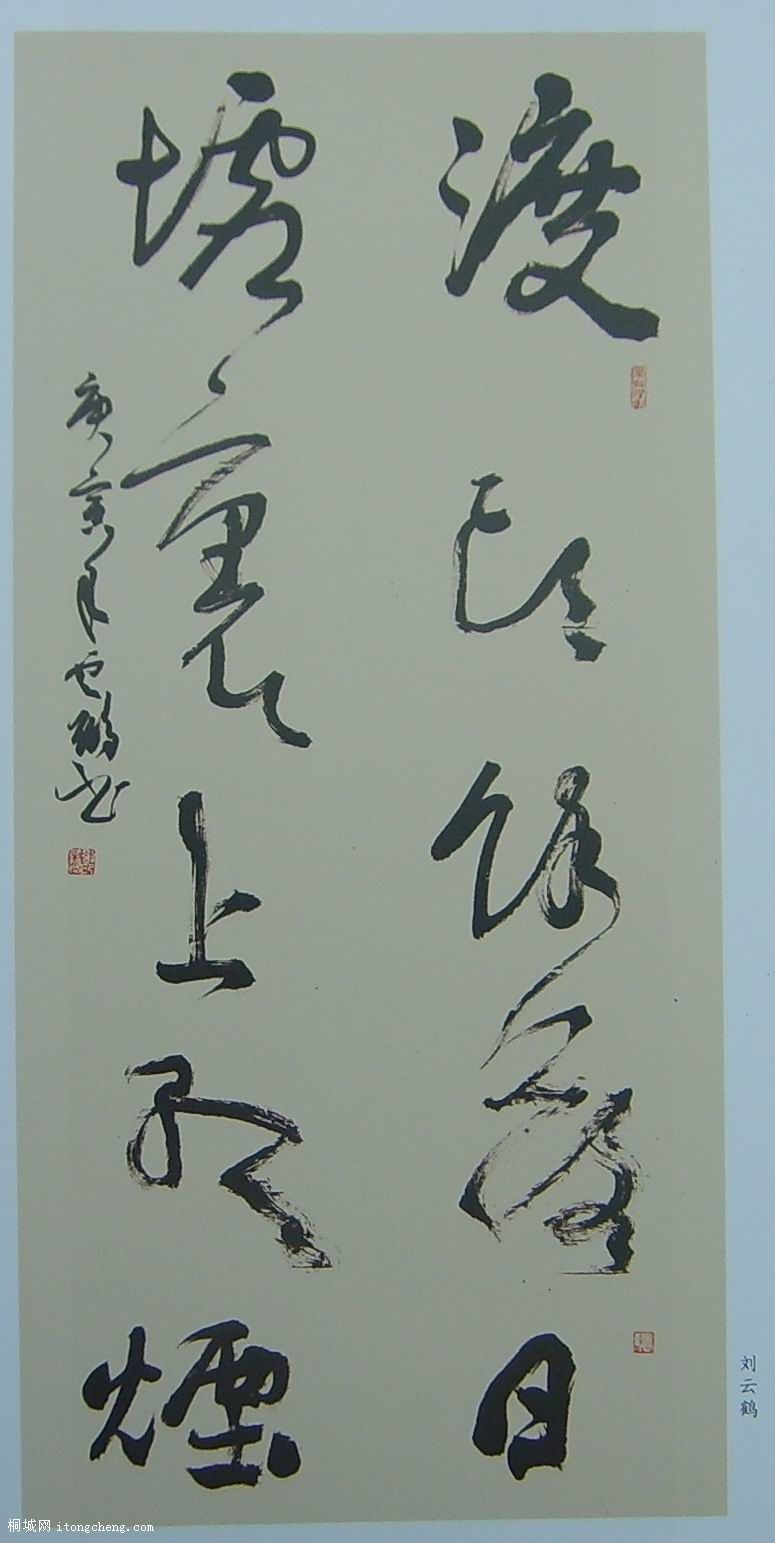 渡頭餘落日
墟里上孤煙
庚寅年雲鶴書
刘云鹤
桐城网 itongcheng.com